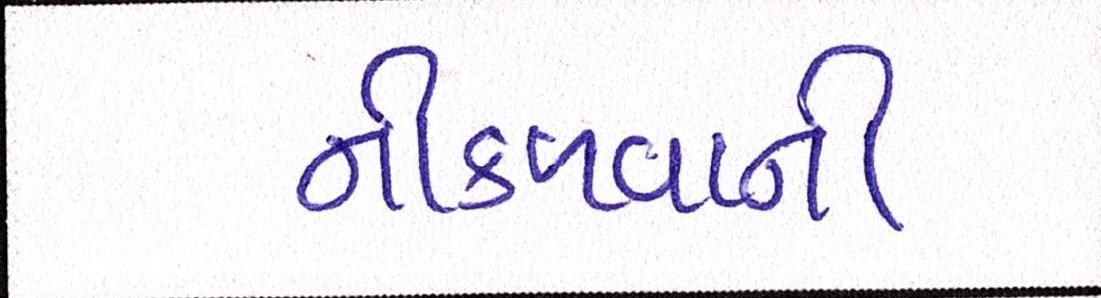 નીકળવાની